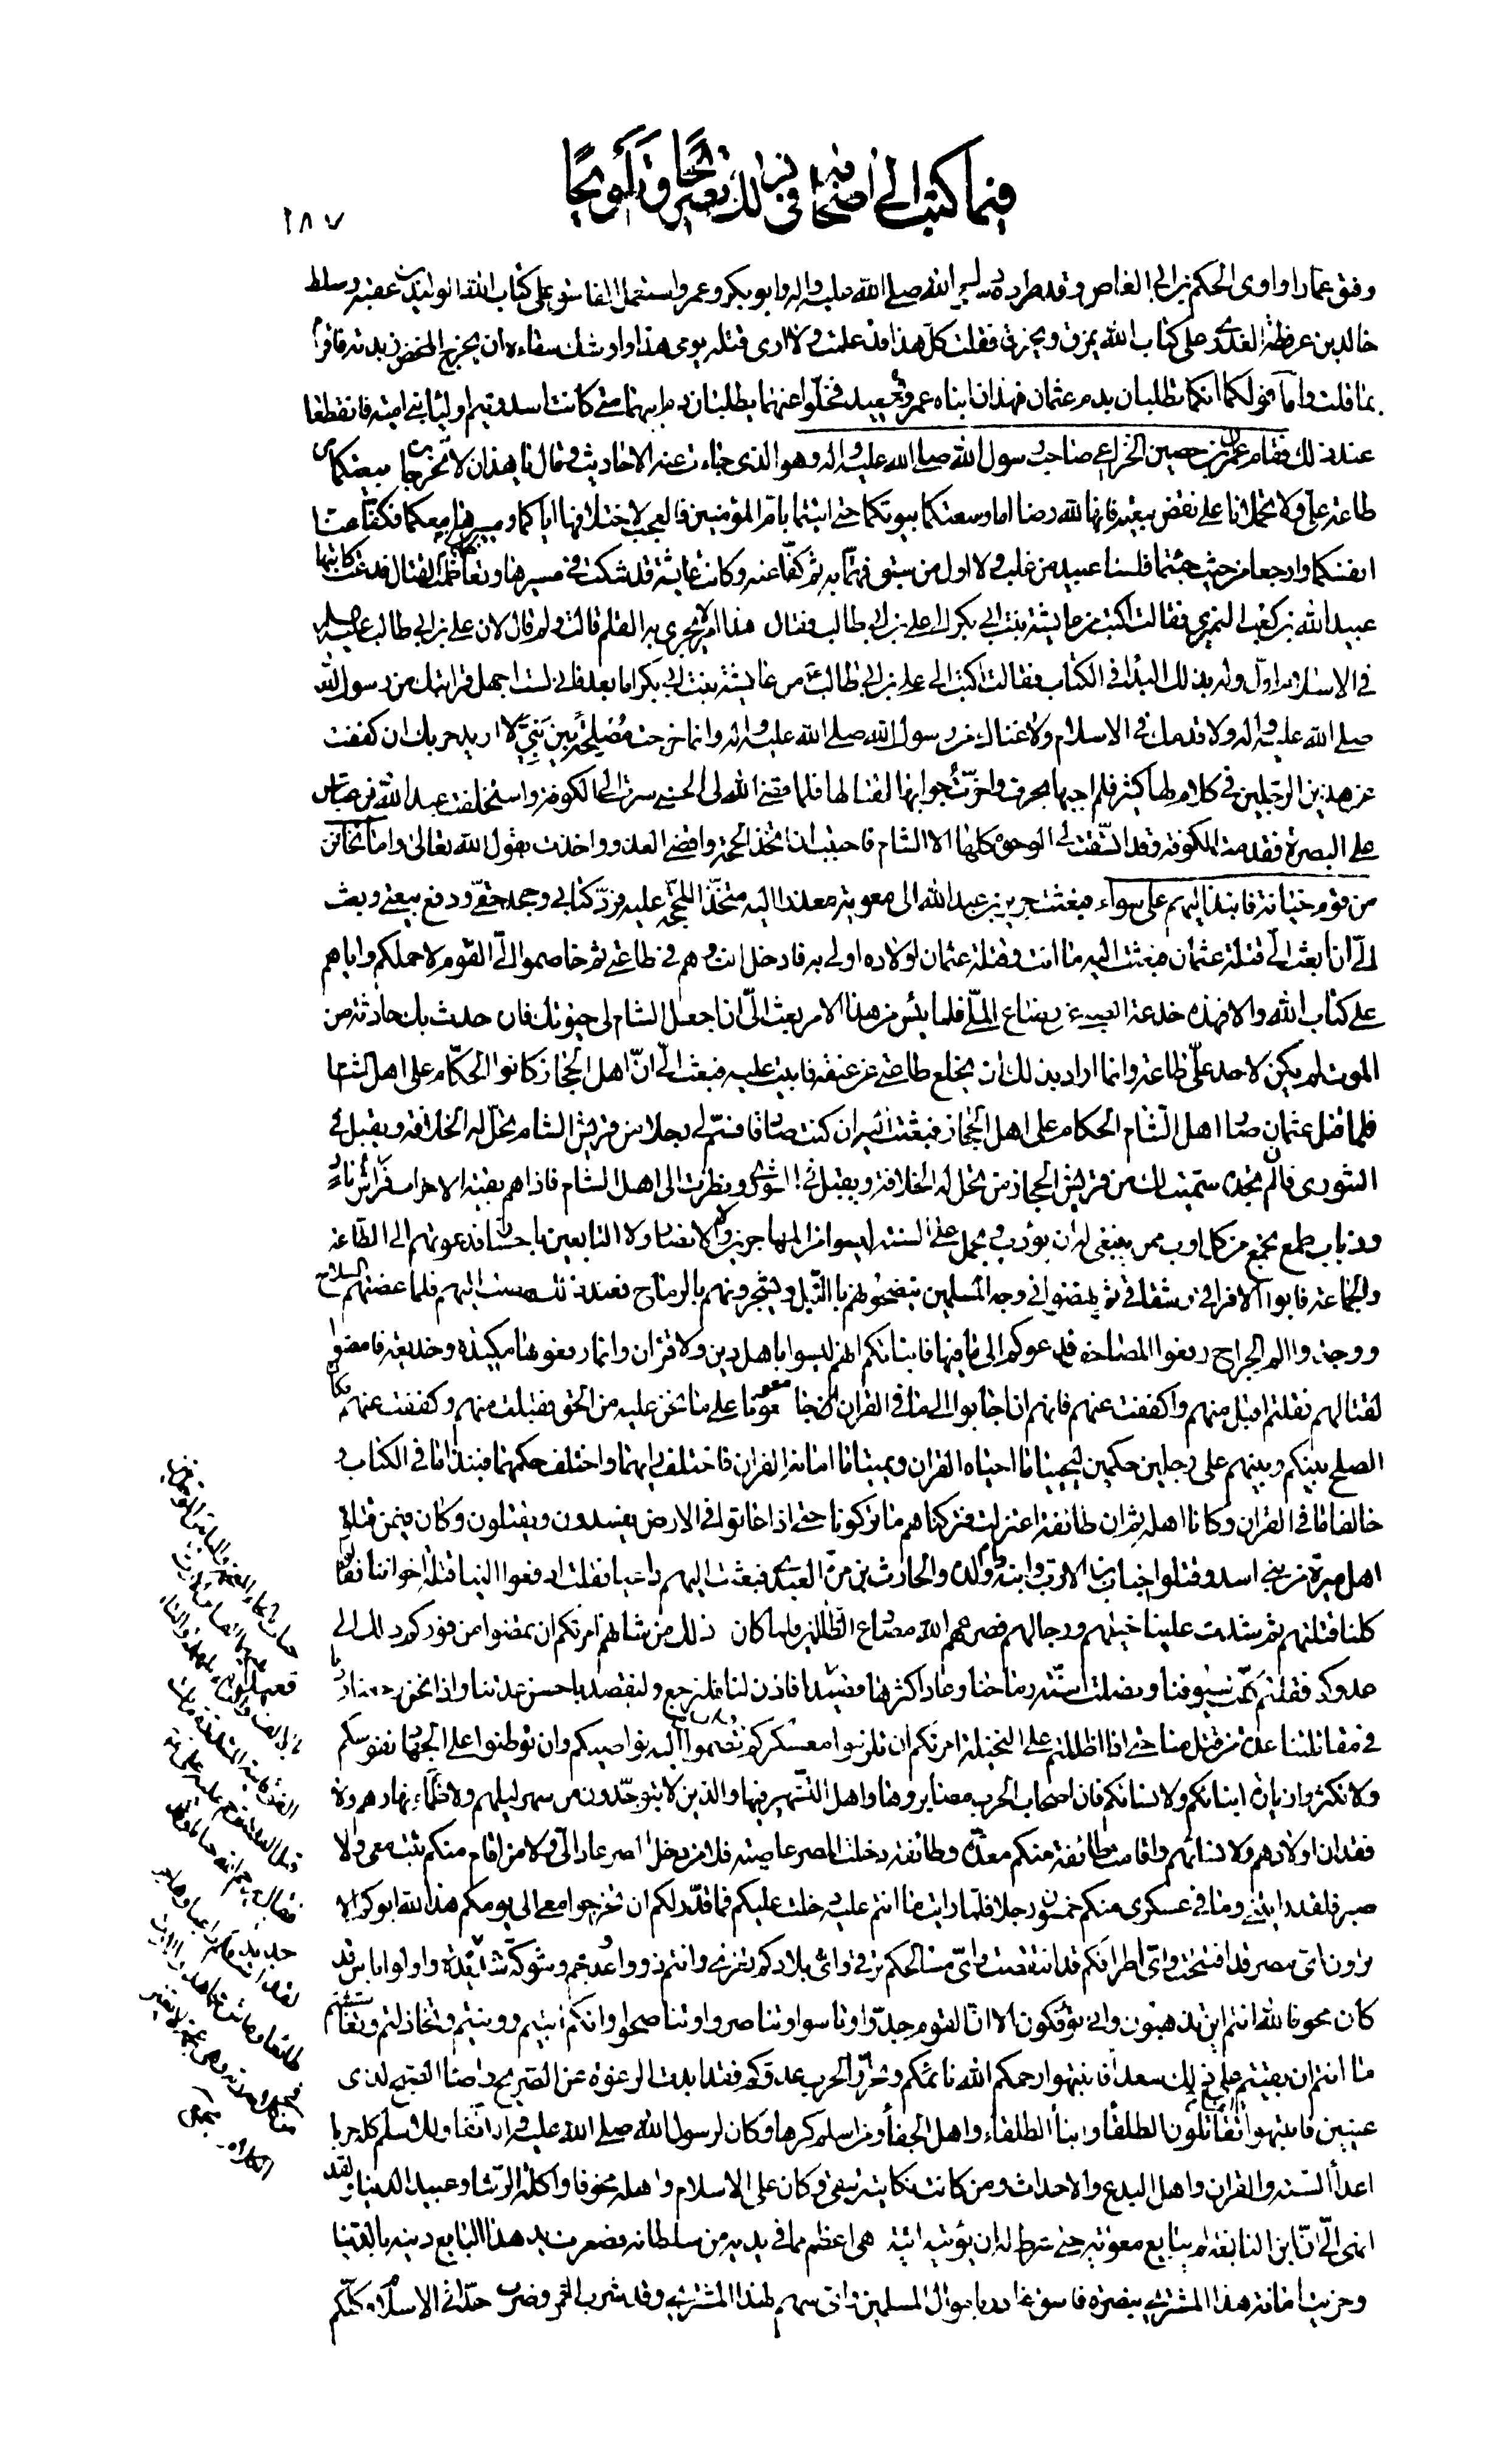 فيما كتب الى اصحابه في ذلك تصريحا وتلويحا
١٨٧
وفتق عمارا واوى الحكم بن ابي العاص وقد طرده رسول الله صلى الله عليه واله وابو بكر وعمر واستعمل الفاسق على كتاب الله الوليد بن عقبة وسلط
خالد بن عرفطة العذري على كتاب الله يمزق ويحرق فقلت كل هذا قد علمت ولا ارى قتله يومي هذا واوشك سقاءه ان يخرج المخض زبدته فاقرا
بما قلت واما قولكما انكما تطلبان بدم عثمان فهذان ابناه عمرو وسعيد فخلوا عنهما يطلبان دم ابيهما متى كانت اسد وتيم اولياء بني امية فانقطعا
عند ذلك فقام عمران بن حصين الخزاعي صاحب رسول الله صلى الله عليه واله وهو الذي جاءت عنه الاحاديث وقال يا هذان لا تخرجانا ببيعتكما من
طاعة علي ولا تحملانا على نقض بيعته فانها لله رضا اما وسعتكما بيوتكما حتى اتيتما بام المؤمنين فالعجب لاختلافها اياكما ومسيرها معكما فكفا عنا
انفسكما وارجعا من حيث جئتما فلسنا عبيد من غلب ولا اول من سبق فهما به ثم كفا عنه وكانت عايشة قد شكت في مسيرها وتعاظمت القتال فدعت كاتبها
عبيد الله بن كعب النميري فقالت اكتب من عايشة بنت ابي بكر الى علي بن ابي طالب فقال هذا امر لا يجري به القلم قالت ولم قال لان علي بن ابي طالب
في الاسلام اول وله بذلك البدا في الكتاب فقالت اكتب الى علي بن ابي طالب من عايشة بنت ابي بكر اما بعد فاني لست اجهل قرابتك من رسول الله
صلى الله عليه واله ولا قدمك في الاسلام ولا غناك من رسول الله صلى الله عليه واله وانما خرجت مصلحة بين بني لا اريد حربك ان كففت
عن هذين الرجلين في كلام لها كثير فلم اجبها بحرف واخرت جوابها لقتالها فلما قضى الله لي الحسنى سرت الى الكوفة واستخلفت عبد الله بن عباس
على البصرة فقدمت الكوفة وقد اتسقت لي الوجوه كلها الا الشام فاحببت ان اتخذ الحجة واقضي العذر واخذت بقول الله تعالى واما تخافن
من قوم خيانة فانبذ اليهم على سواء فبعثت جرير بن عبد الله الى معوية معذرا اليه متخذا للحجة عليه فرد كتابي وجحد حقي ودفع بيعتي وبعث
الي ان ابعث الي قتلة عثمان فبعثت اليه ما انت وقتلة عثمان اولاده اولى به فادخل انت وهم في طاعتي ثم خاصموا الي القوم لاحملكم واياهم
على كتاب الله والا فهذه خدعة الصبي عن رضاع الملي فلما يئس من هذا الامر بعث الي ان اجعل الشام لي حيوتك فان حدث بك حادثة من
الموت لم يكن لاحد علي طاعة وانما اراد بذلك ان يخلع طاعتي من عنقه فابيت عليه فبعث الي ان اهل الحجاز كانوا الحكام على اهل الشام
فلما قتل عثمان صار اهل الشام الحكام على اهل الحجاز فبعثت اليه ان كنت صادقا فسم لي رجلا من قريش الشام يحل له الخلافة ويقبل في
الشورى فان لم تجده سميت لك من قريش الحجاز من يحل له الخلافة ويقبل في الشورى ونظرت الى اهل الشام فاذا هم بقية الاحزاب فراش نار
وذباب طمع يجمع من كل اوب ممن ينبغي له ان يؤدب ويحمل على السنة ليسوا من المهاجرين ولا الانصار ولا التابعين باحسان فدعوتهم الى الطاعة
والجماعة فابوا الا فراقي وشقاقي ثم نهضوا في وجه المسلمين ينضحونهم بالنبل ويشجرونهم بالرماح فعند ذلك نهضت اليهم فلما عضتهم السلاح
ووجدوا الم الجراح رفعوا المصاحف فدعوكم الى ما فيها فانباتكم انهم ليسوا باهل دين ولا قران وانما رفعوها مكيدة وخديعة فامضوا
لقتالهم فقلتم اقبل منهم واكفف عنهم فانهم ان اجابوا الى ما في القران جامعونا على ما نحن عليه من الحق فقبلت منهم وكففت عنهم فكان
الصلح بينكم وبينهم على رجلين حكمين ليحييا ما احياه القران ويميتا ما اماته القران فاختلف رايهما واختلف حكمهما فنبذا ما في الكتاب و
خالفا ما في القران وكانا اهله ثم ان طائفة اعتزلت فتركناهم ما تركونا حتى اذا عاثوا في الارض يفسدون ويقتلون وكان فيمن قتلوه
اهل ميرة من بني اسد وقتلوا خباب بن الارت وابنه وام ولده والحارث بن مرة العبدي فبعثت اليهم داعيا فقلت ادفعوا الينا قتلة اخواننا فقالوا
كلنا قتلتهم ثم شدت علينا خيلهم ورجالهم فصرعهم الله مصارع الظالمين فلما كان ذلك من شانهم امرتكم ان تمضوا من فوركم ذلك الى
عدوكم فقلتم كلت سيوفنا ونصلت اسنة رماحنا وعاد اكثرها قصيدا فاذن لنا فلنرجع ولنقصد باحسن عدتنا واذا نحن رجعنا زدنا
في مقاتلتنا عدة من قتل منا حتى اذا اظللتم على النخيلة امرتكم ان تلزموا معسكركم وتضموا اليه نواصيكم وان توطنوا على الجهاد نفوسكم
ولا تكثروا زيارة ابنائكم ولا نسائكم فان اصحاب الحرب مصابروها واهل التشمير فيها والذين لا يتوجدون من سهر ليلهم ولا ظماء نهارهم ولا
فقدان اولادهم ولا نسائهم واقامت طائفة منكم معدة وطائفة دخلت المصر عاصية فلا من دخل المصر عاد الي ولا من اقام منكم ثبت معي ولا
صبر فلقد رايتني وما في عسكري منكم خمسون رجلا فلما رايت ما انتم عليه دخلت عليكم فما قدر لكم ان تخرجوا معي الى يومكم هذا لله ابوكم الا
ترون اي مصر قد افتتحت واي اطرافكم قد انتقصت واي مسالحكم ترقى واي بلادكم تغزى وانتم ذوو عدد جم وشوكة شديدة واولوا باس قد
كان مخوفا لله انتم اين تذهبون واني تؤفكون الا ان القوم جدوا وتاسوا وتناصروا وتناصحوا وانكم ابيتم وونيتم وتخاذلتم
ما انتم ان بقيتم على ذلك سعداء فانتبهوا رحمكم الله نائمكم وتحرزوا لحرب عدوكم فقد ابدت الرغوة عن الصريح واضاء الصبح لذي
عينين فانتبهوا انما تقاتلون الطلقاء وابناء الطلقاء واهل الجفاء ومن اسلم كرها وكان لرسول الله صلى الله عليه واله انفا وللاسلام كله حربا
اعداء السنة والقران واهل البدع والاحداث ومن كانت نكايته تتقى وكان على الاسلام واهله مخوفا واكلة الرشا وعبيد الدنيا ولقد
انهي الي ان ابن النابغة لم يبايع معوية حتى شرط له ان يؤتيه اتية هي اعظم مما في يديه من سلطانه فصفرت يد هذا البايع دينه بالدنيا
وخزيت امانة هذا المشتري بنصرة فاسق غادر باموال المسلمين واي سهم لهذا المشتري وقد شرب الخمر وضرب حدا في الاسلام وكلكم